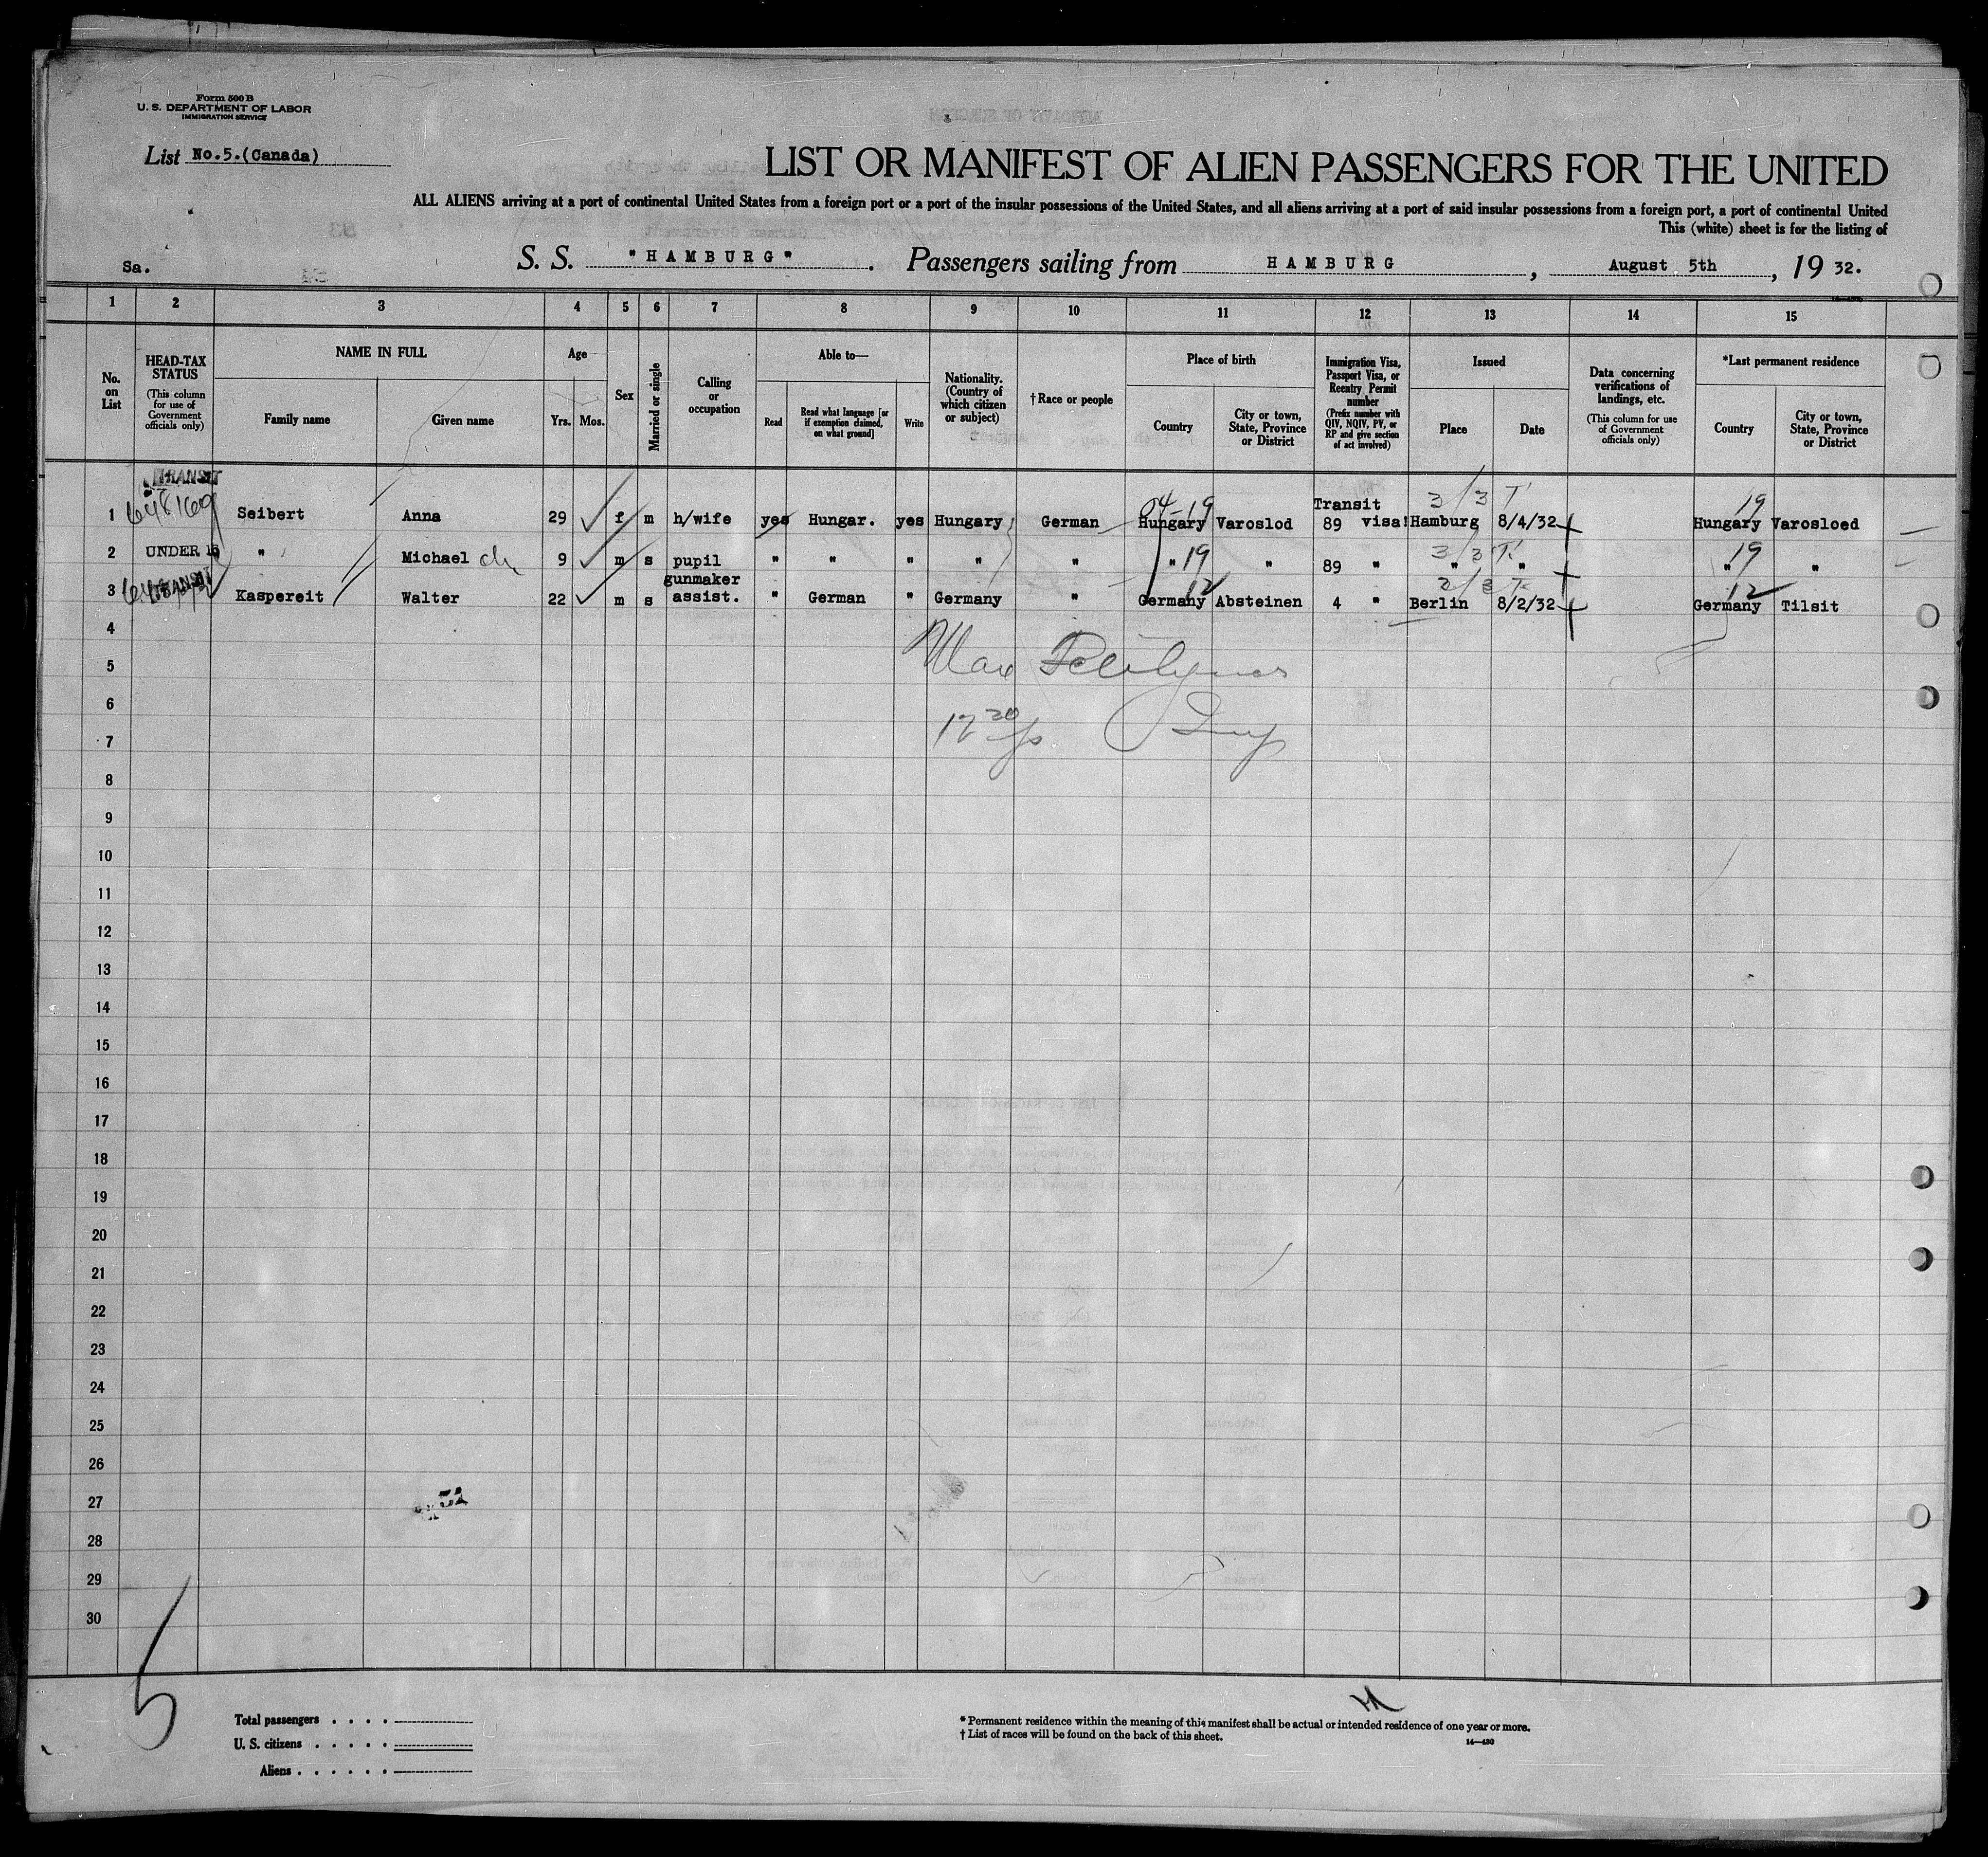 Form 500 B
U. S. DEPARTMENT OF LABOR
IMMIGRATION SERVICE
List No.5.(Canada)
LIST OR MANIFEST OF ALIEN PASSENGERS FOR THE UNITED
ALL ALIENS arriving at a port of continental United States from a foreign port or a port of the insular possessions of the United States, and all aliens arriving at a port of said insular possessions from a foreign port, a port of continental United
This (white) sheet is for the listing of
Sa.
S. S. "HAMBURG". Passengers sailing from HAMBURG, August 5th, 19 32.
1 2 3 4 5 6 7 8 9 10 11 12 13 14 15
No. on List
HEAD-TAX STATUS (This column for use of Government officials only)
NAME IN FULL
Family name Given name
Age
Yrs. Mos.
Sex
Married or single
Calling or occupation
Able to—
Read
Read what language [or if exemption claimed, on what ground]
Write
Nationality. (Country of which citizen or subject)
† Race or people
Place of birth
Country
City or town, State, Province or District
Immigration Visa, Passport Visa, or Reentry Permit number (Prefix number with QIV, NQIV, PV, or RP and give section of act involved)
Issued
Place Date
Data concerning verifications of landings, etc. (This column for use of Government officials only)
*Last permanent residence
Country
City or town, State, Province or District
TRANSIT
04-19 Transit 3/3 T 19
1 648169 Seibert Anna 29 f m h/wife yes Hungar. yes Hungary German Hungary Varoslod 89 visa! Hamburg 8/4/32 Hungary Varosloed
3/3 T.
2 UNDER 16 " Michael ch 9 m s pupil " " " " " " 19 " 89 " " " " 19 "
TRANSIT gunmaker 12 12
3 Kaspereit Walter 22 m s assist. " German " Germany " Germany Absteinen 4 " Berlin 8/2/32 Germany Tilsit
4
5 Max
6
7
8
9
10
11
12
13
14
15
16
17
18
19
20
21
22
23
24
25
26
27
28
29
30
5
Total passengers . . . .
U. S. citizens . . . . .
Aliens . . . . . .
* Permanent residence within the meaning of this manifest shall be actual or intended residence of one year or more.
† List of races will be found on the back of this sheet.
14—430